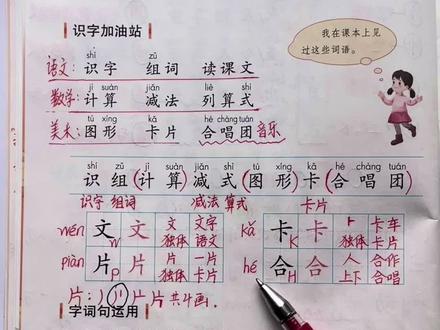 识字加油站
我在课本上见
过这些词语。
shí zǔ
语文:识字 组词 读课文
jì suàn jiǎn liè shì
数学:计算 减法 列算式
tú xíng kǎ hé chàng tuán
美术:图形 卡片 合唱团 音乐
shí zǔ jì suàn jiǎn shì tú xíng kǎ hé chàng tuán
识 组 (计 算) 减 式 (图 形) 卡 (合 唱 团)
识字 组词 减法 算式 卡片
wén 文 W 文 文 独体 文字 语文
kǎ 卡 K 卡 卜 独体 卡车 卡片
piàn 片 P 片 片 独体 一片 卡片
hé 合 H 合 人 上下 合作 合唱
片: 共4画.
字词句运用